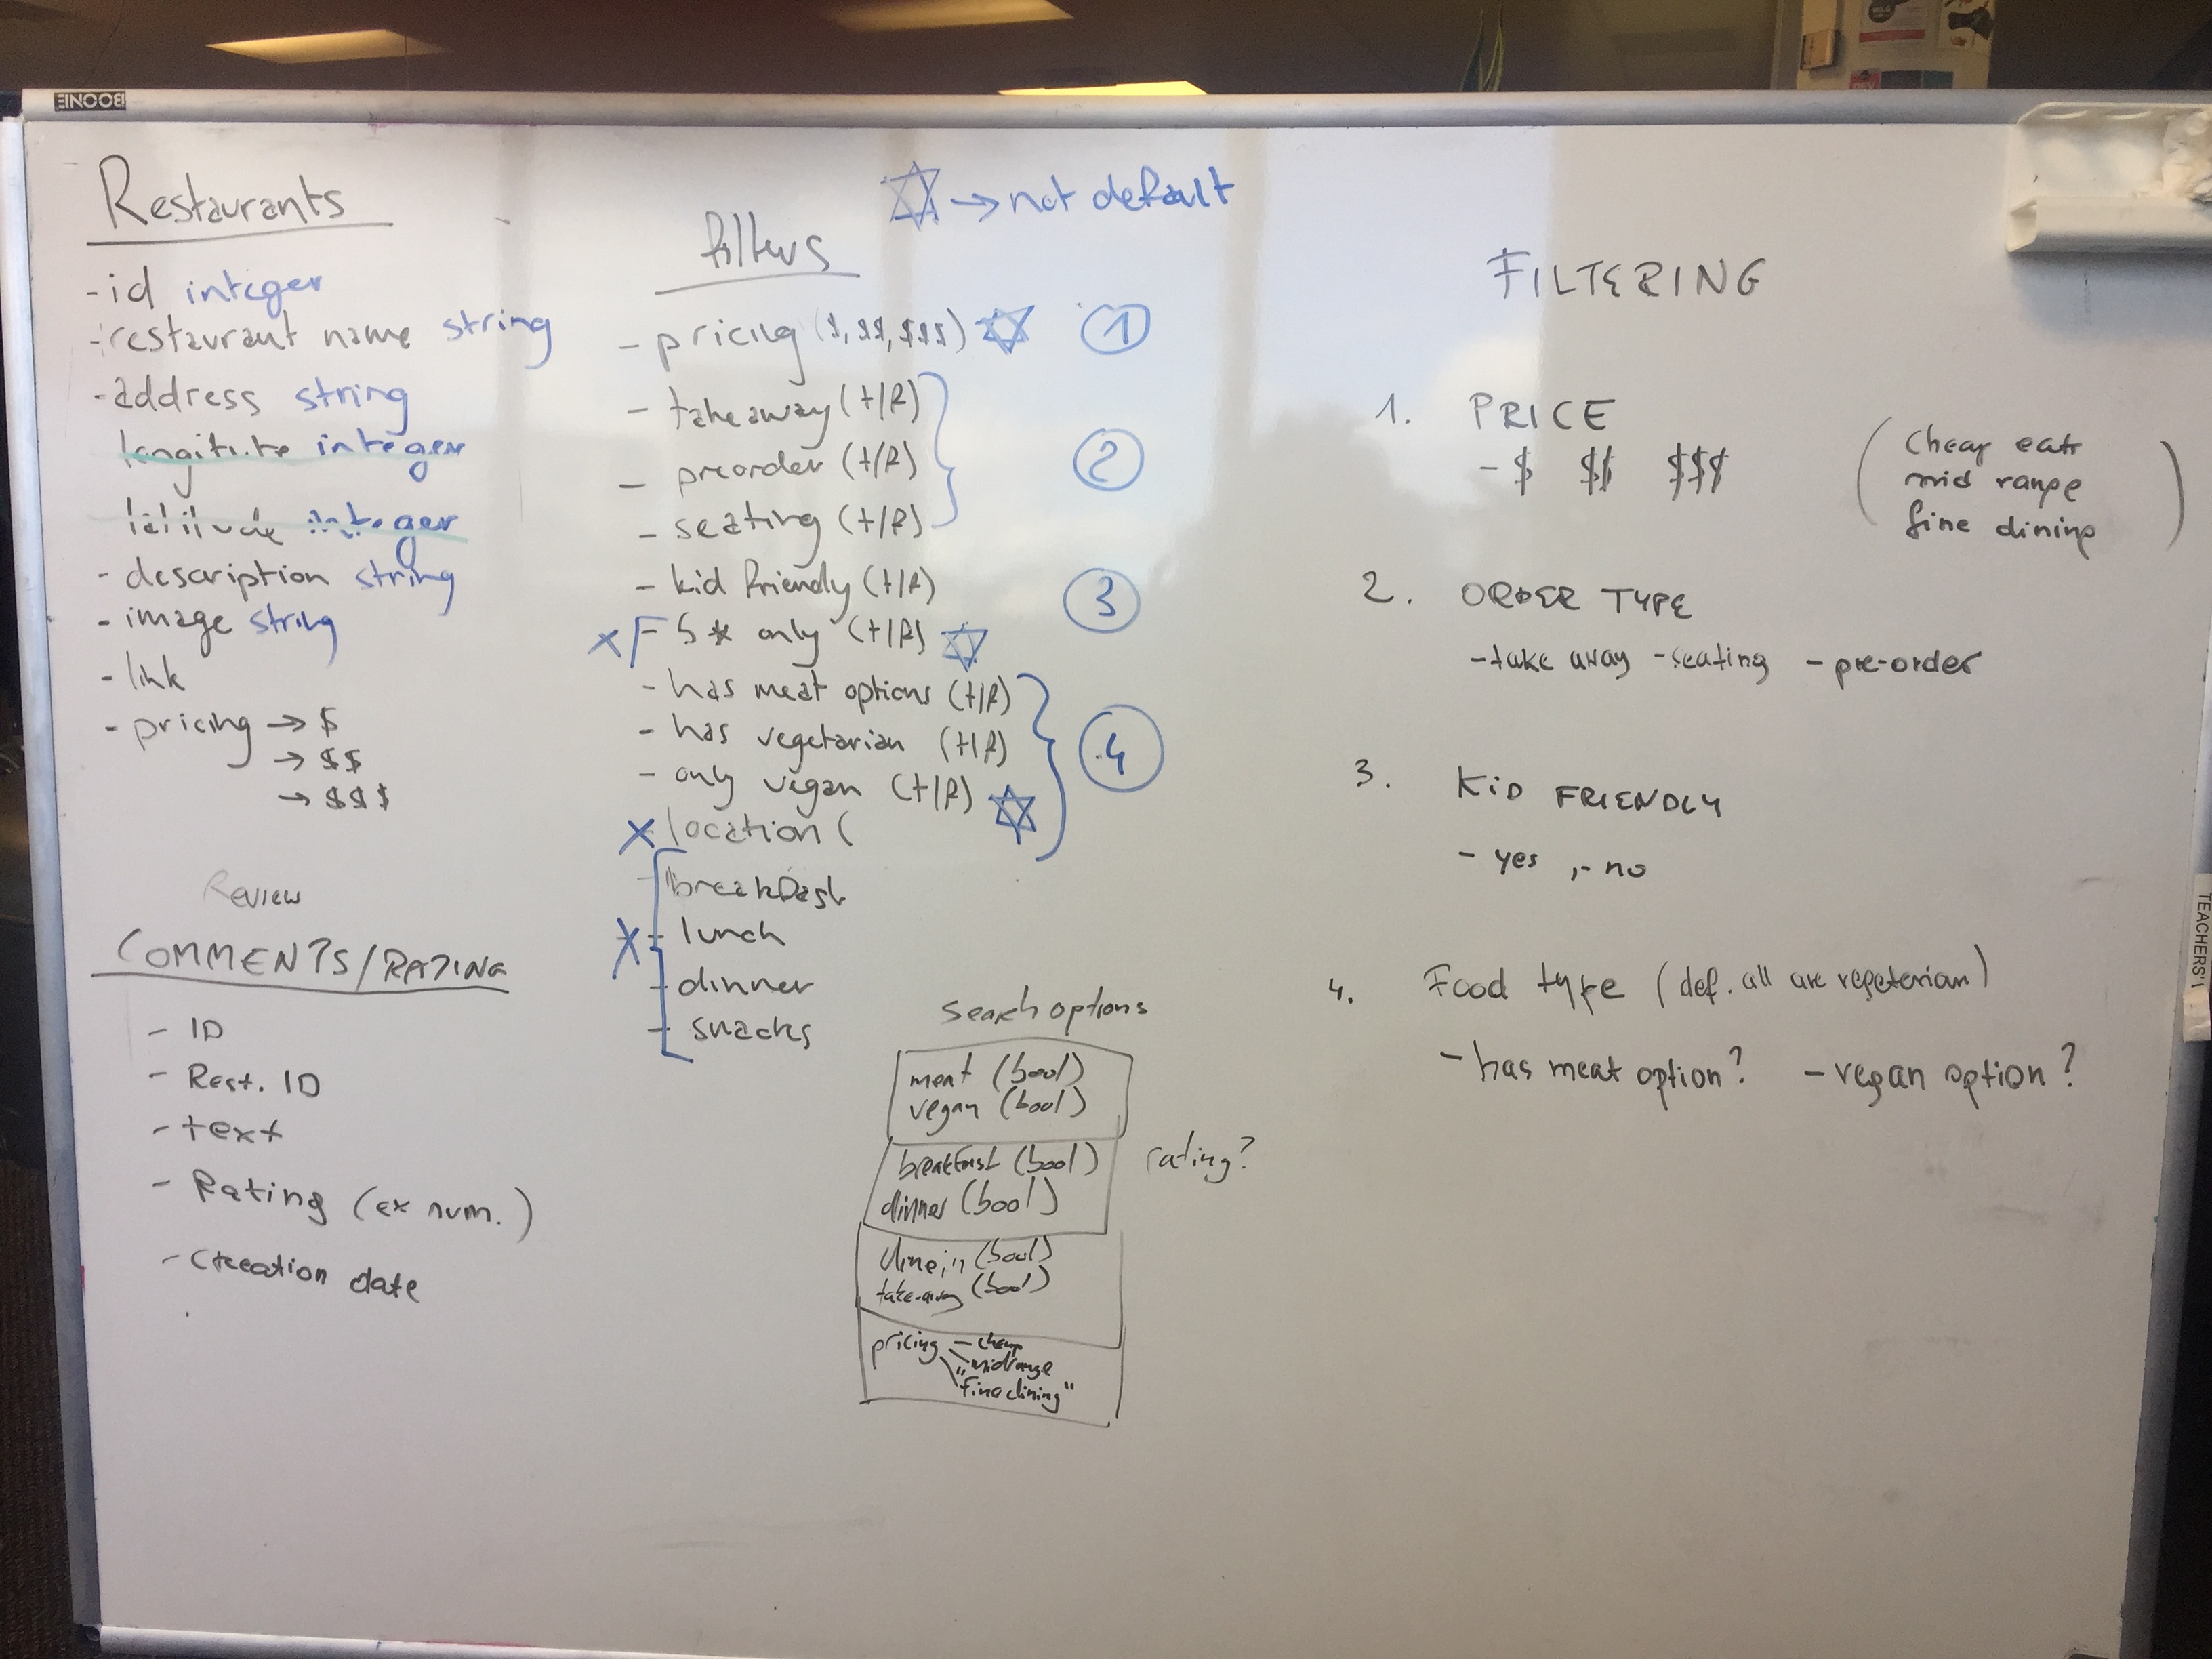 BOONE
Restaurants
- id integer
- restaurant name string
- address string
longitute integer
latitude integer
- description string
- image string
- link
- pricing → $
→ $$
→ $$$
Review
COMMENTS/RATING
- ID
- Rest. ID
- text
- Rating (ex num.)
- Creation date
✡ → not default
filters
- pricing ($, $$, $$$) ✡ ①
- takeaway (t/f)
- preorder (t/f) ②
- seating (t/f)
- kid friendly (t/f) ③
x - 5* only (t/f) ✡
- has meat options (t/f)
- has vegetarian (t/f) ④
- only vegan (t/f) ✡
x location (
breakfast
x - lunch
- dinner
- snacks
search options
meat (bool)
vegan (bool)
breakfast (bool)
dinner (bool)
rating?
dine in (bool)
take-away (bool)
pricing - cheap
"midrange
"fine dining"
FILTERING
1. PRICE
- $ $$ $$$
(cheap eats
mid range
fine dining)
2. ORDER TYPE
- take away - seating - pre-order
3. KiD FRIENDLY
- yes , - no
4. Food type (def. all are vegeterian)
- has meat option? - vegan option?
TEACHERS'